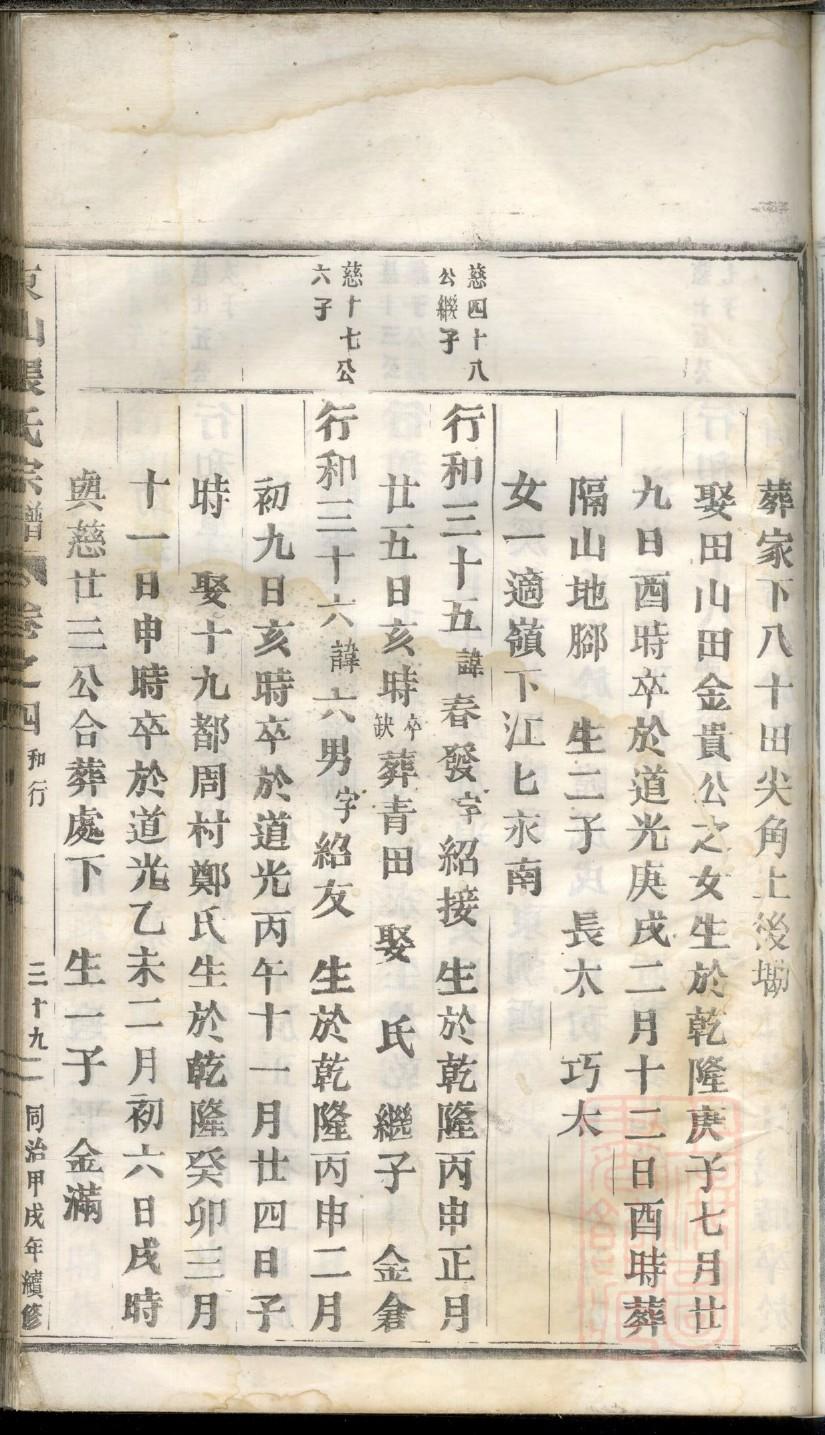 葬家下八十田尖角上後塝
娶田山田金貴公之女生於乾隆庚子七月廿
九日酉時卒於道光庚戌二月十二日酉時葬
隔山地腳 生二子 長太 巧太
女一適嶺下江七永南
慈四十八
公繼子
行和三十五諱春發字紹接 生於乾隆丙申正月
廿五日亥時卒缺葬青田 娶 氏 繼子 金倉
慈十七公
六子
行和三十六諱六男字紹友 生於乾隆丙申二月
初九日亥時卒於道光丙午十一月廿四日子
時 娶十九都周村鄭氏生於乾隆癸卯三月
十一日申時卒於道光乙未二月初六日戌時
與慈廿三公合葬處下 生一子 金滿
東山張氏宗譜 卷之四 和行 三十九 同治甲戌年續修